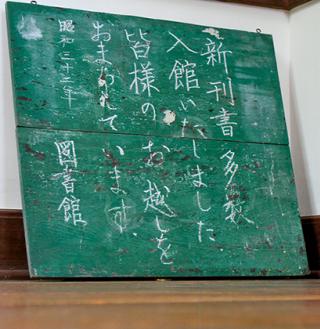 新刊書多数
入館いたしました
皆様のお越しを
おまちしています。
昭和三十二年
圖書館